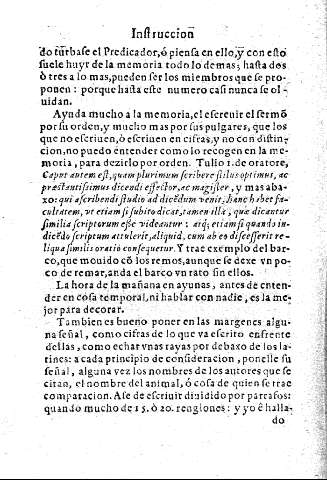 Instruccion
do turbase el Predicador, ó piensa en ello, y con esto
suele huyr de la memoria todo lo demas; hasta dos
ò tres a lo mas, pueden ser los miembros que se pro-
ponen: porque hasta este numero casi nunca se ol-
uidan.
Ayuda mucho a la memoria, el escreuir el sermõ
por su orden, y mucho mas por sus pulgares, que los
que no escriuen, ò escriuen en cifras, y no con distin-
cion, no puedo entender como lo recogen en la me-
moria, para dezirlo por orden. Tulio 1. de oratore,
Caput autem est, quam plurimum scribere stilus optimus, ac
præstantissimus dicendi effector, ac magister, y mas aba-
xo: qui a scribendi studio ad dicẽdum venit, hanc habet fa-
cultatem, vt etiam si subito dicat, tamen illa, quæ dicantur
similia scriptorum esse videantur: atq; etiam si quando in-
dicẽdo scriptum attulerit, aliquid, cum ab eo discesserit re-
liqua similis oratio consequetur. Y trae exemplo del bar-
co, que mouido cõ los remos, aunque se dexe vn po-
co de remar, anda el barco vn rato sin ellos.
La hora de la mañana en ayunas, antes de enten-
der en cosa temporal, ni hablar con nadie, es la me-
jor para decorar.
Tambien es bueno poner en las margenes algu-
na señal, como cifras de lo que va escrito enfrente
dellas, como echar vnas rayas por debaxo de los la-
tines: a cada principio de consideracion, ponelle su
señal, alguna vez los nombres de los autores que se
citan, el nombre del animal, ó cosa de quien se trae
comparacion. A se de escriuir diuidido por parrafos:
quando mucho de 15. ò 20. rengiones: y yo è halla-
do